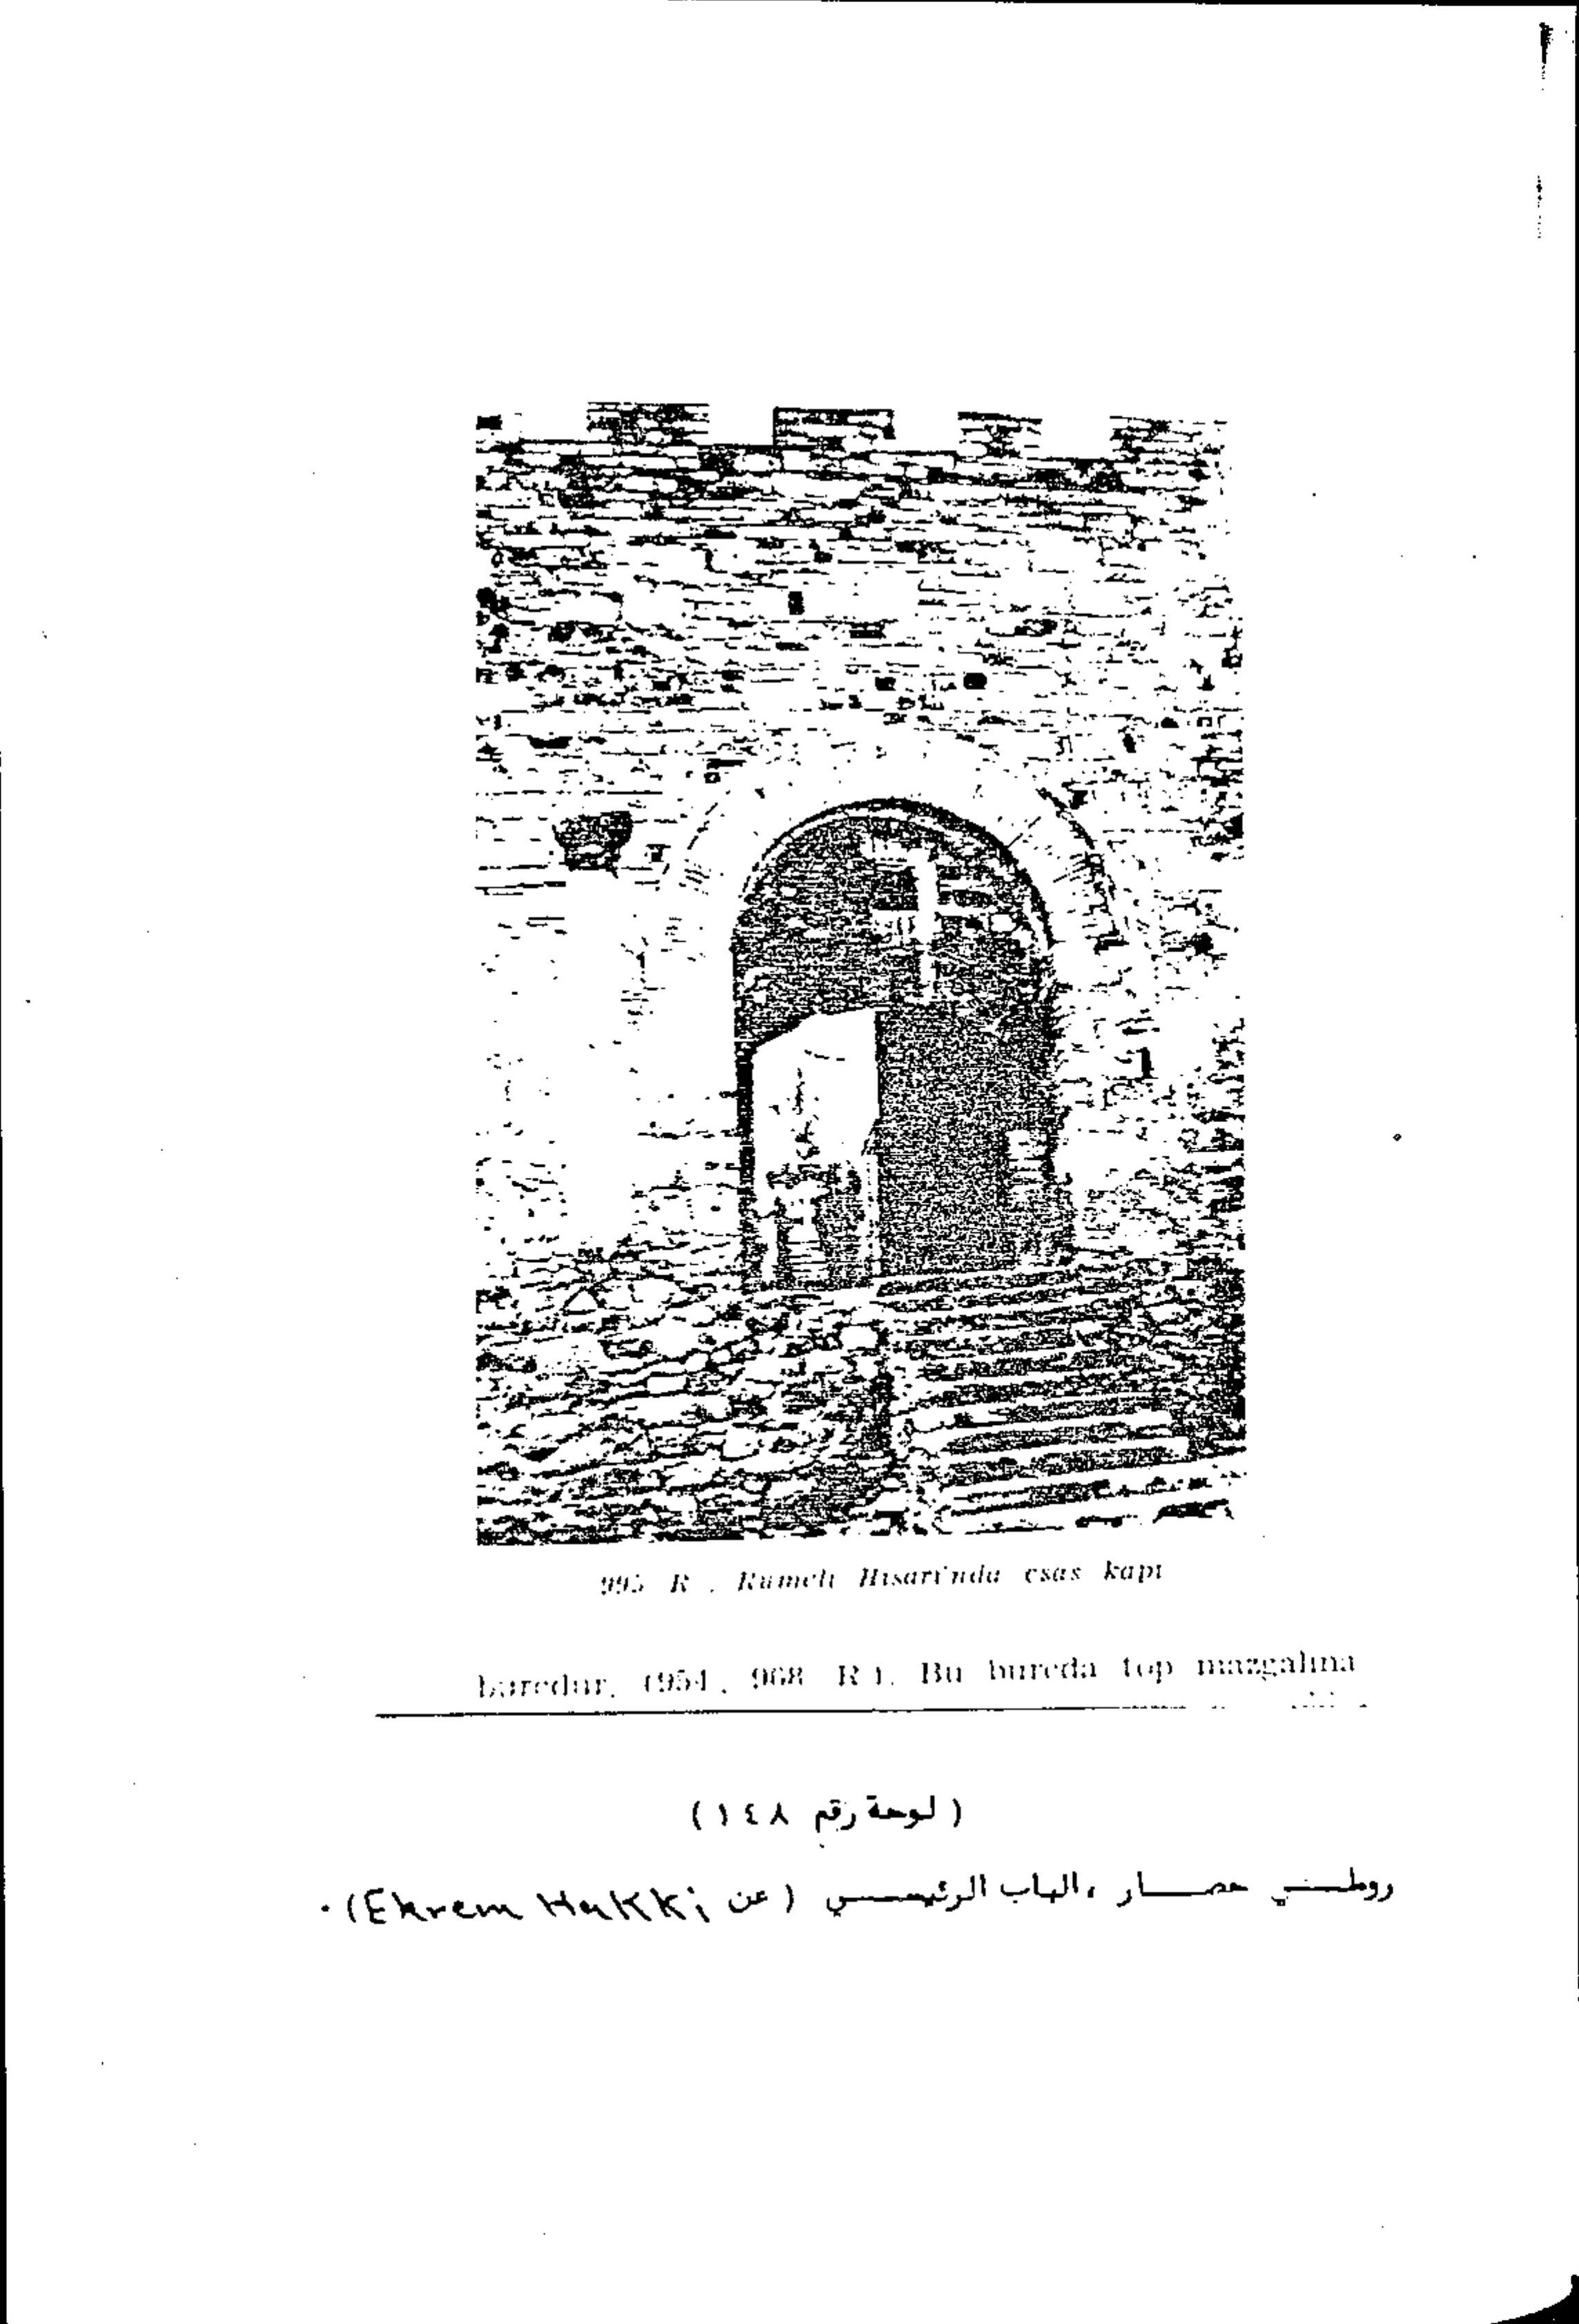 995 R . Rumeli Hisarı'nda esas kapı
burcdur. (954 , 968 R ). Bu burcda top mazgalına
( لوحة رقم ١٤٨ )
حصار ، الباب الرئيسي ( عن Ekrem Hakki) .